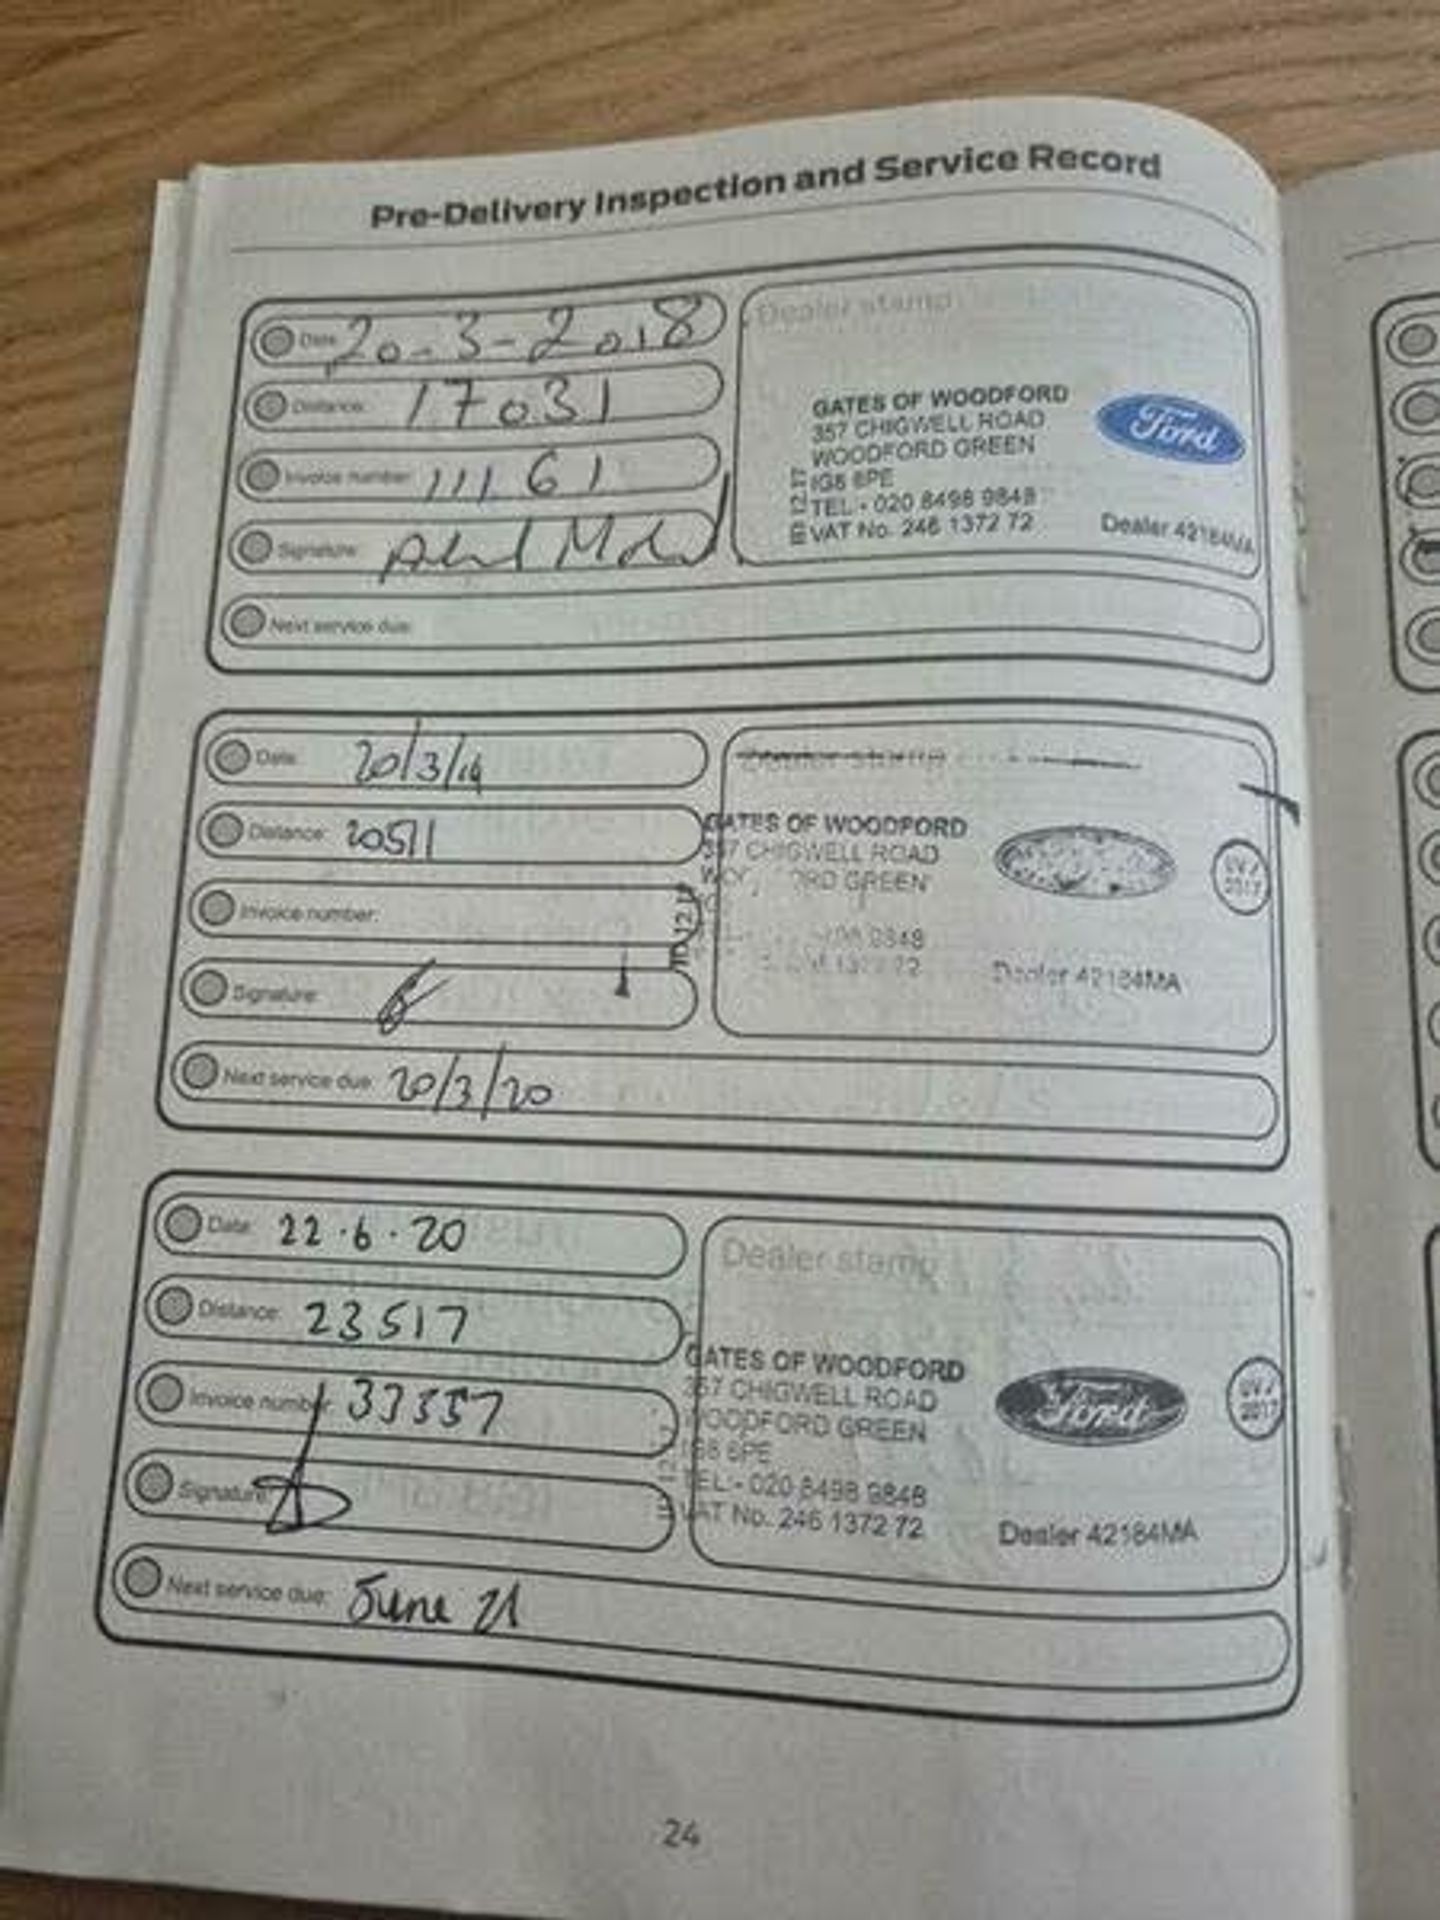 Pre-Delivery Inspection and Service Record
Date: 20-3-2018
Distance: 17031
Invoice number: 11161
Signature:
Next service due:
Dealer stamp
GATES OF WOODFORD
357 CHIGWELL ROAD
WOODFORD GREEN
IG8 8PE
TEL - 020 8498 9848
VAT No. 246 1372 72
Ford
Dealer 42184MA
Date: 20/3/19
Distance: 20511
Invoice number:
Signature:
Next service due: 20/3/20
Dealer stamp
GATES OF WOODFORD
357 CHIGWELL ROAD
GREEN
9848
1372 72
Dealer 42184MA
UV / 2017
Date: 22.6.20
Distance: 23517
Invoice number: 33357
Signature:
Next service due: June 21
Dealer stamp
GATES OF WOODFORD
357 CHIGWELL ROAD
WOODFORD GREEN
IG8 8PE
TEL - 020 8498 9848
VAT No. 246 1372 72
Ford
UV / 2017
Dealer 42184MA
24